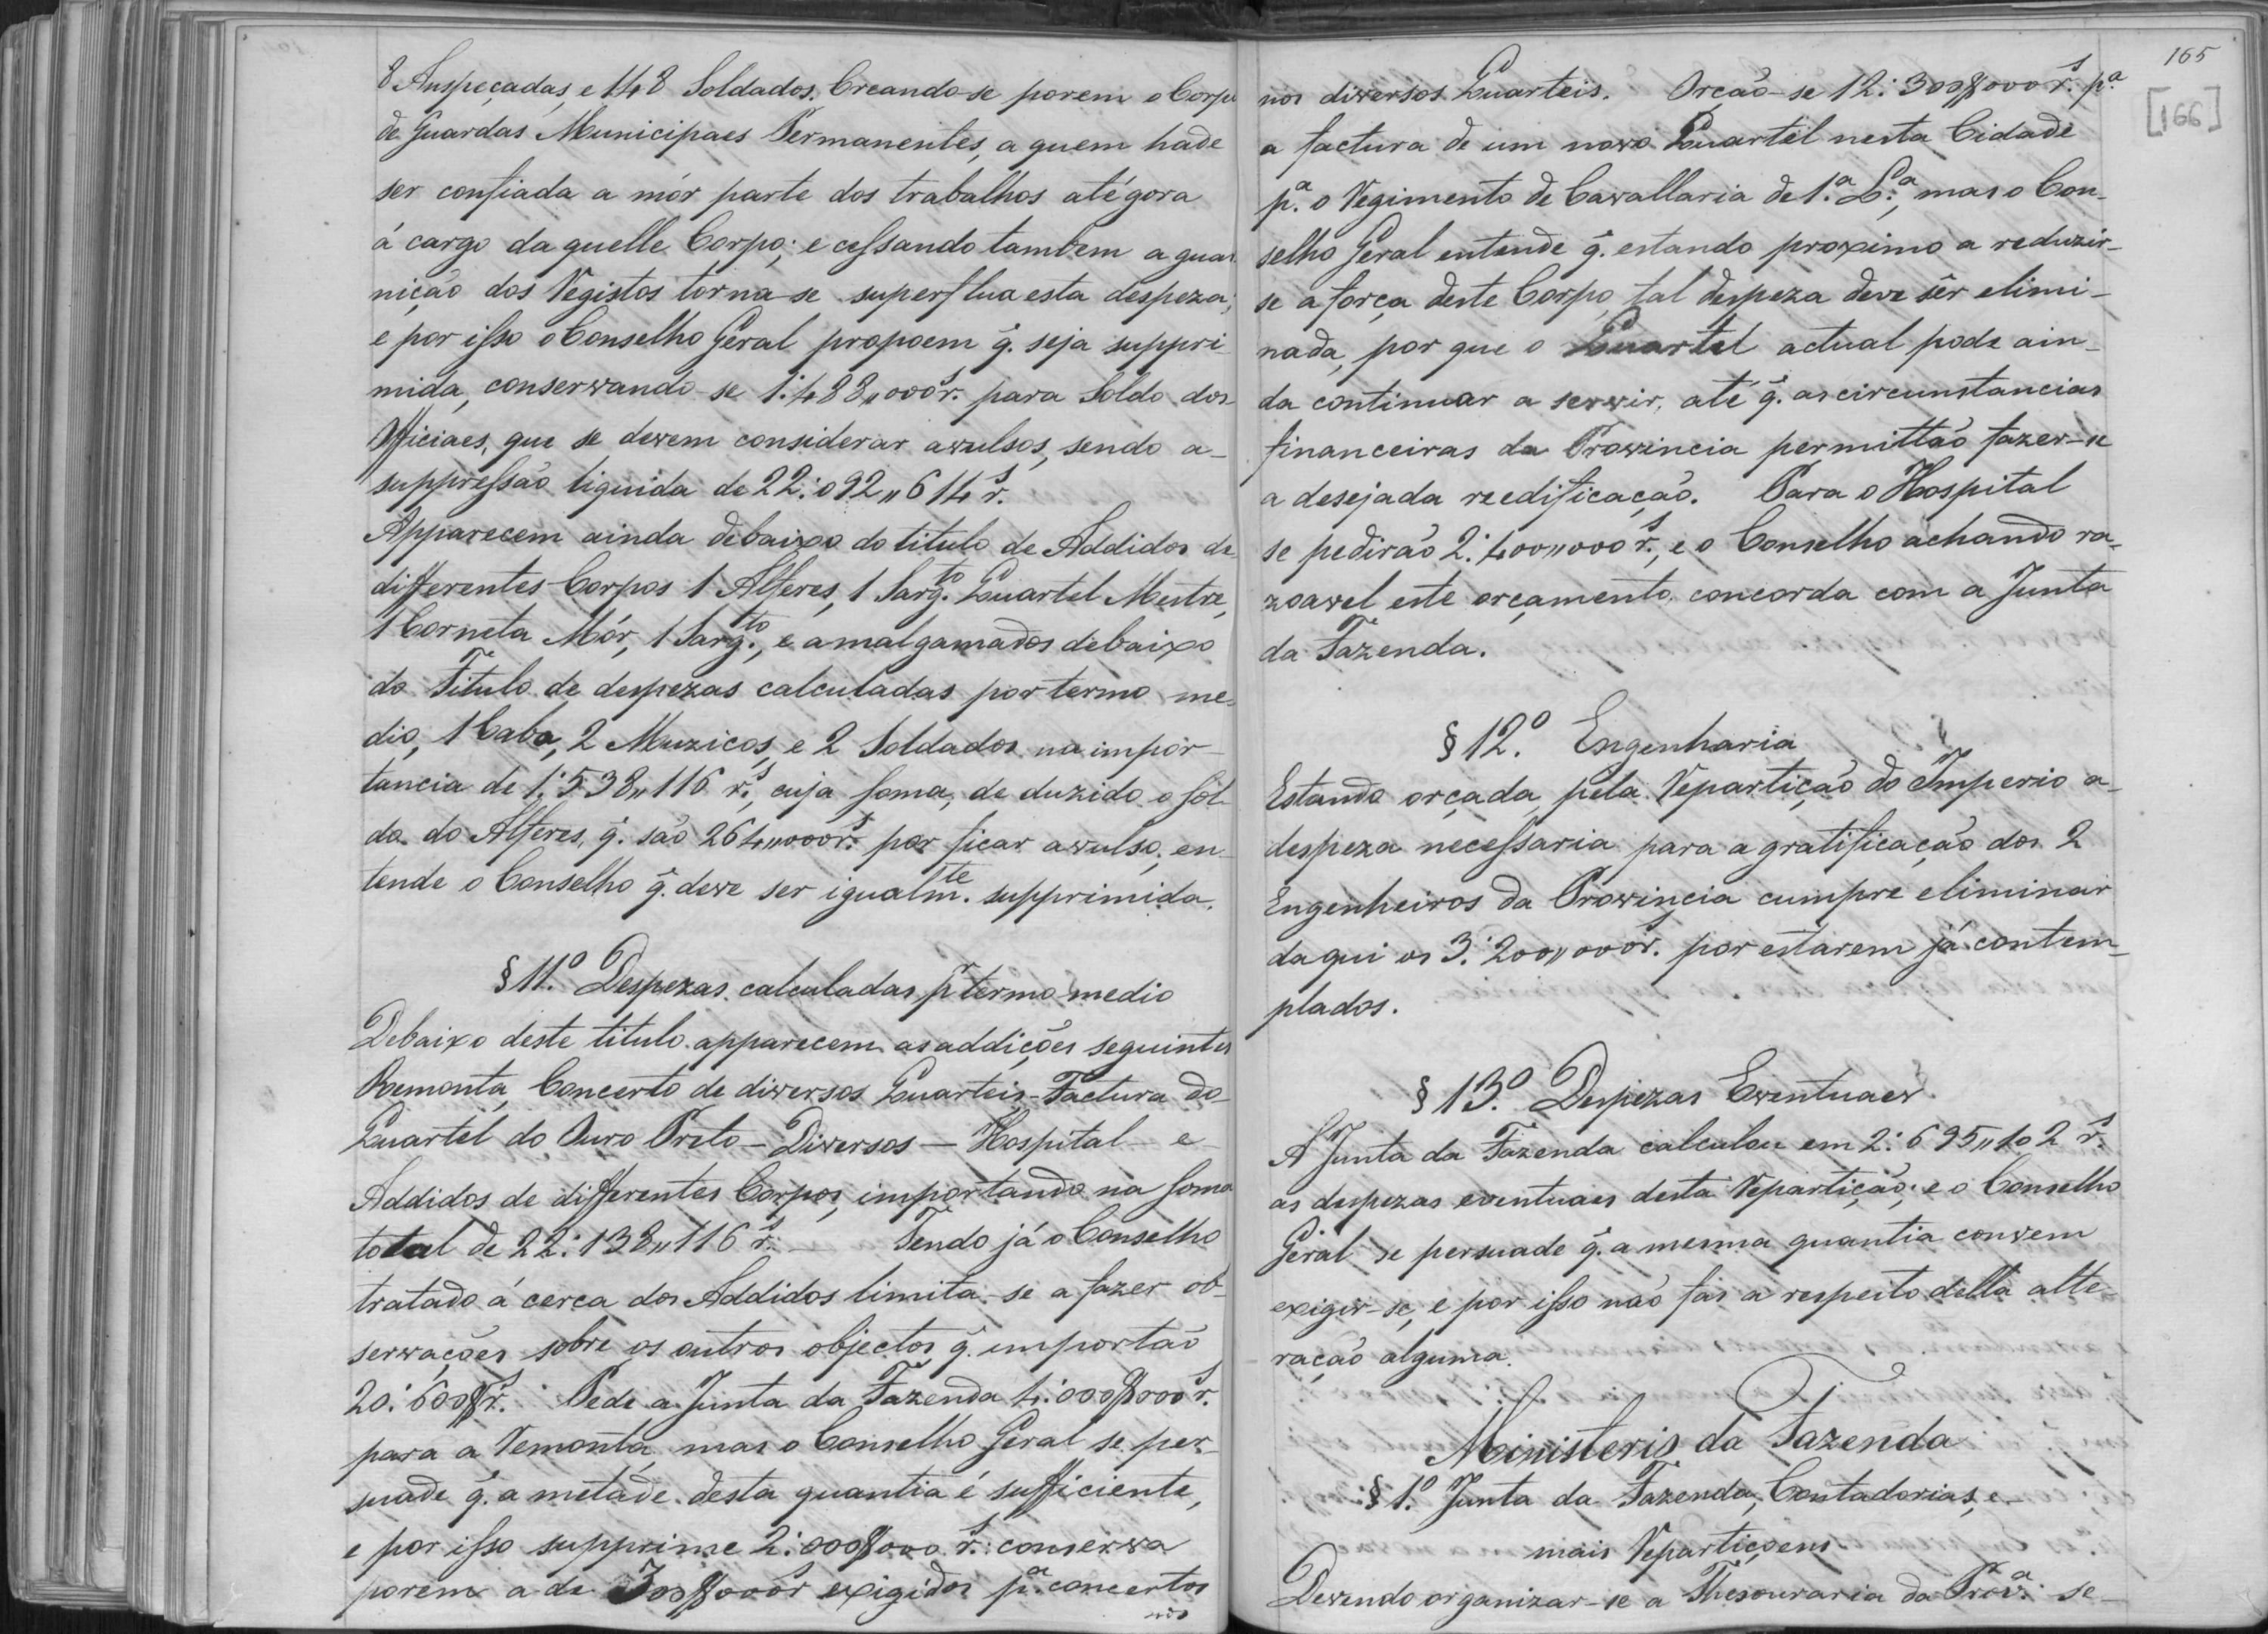 8 Anspeçadas, e 148 Soldados. Creando-se porem o Corpo
de Guardas Municipaes Permanentes, a quem hade
ser confiada a mór parte dos trabalhos atégora
á cargo daquelle Corpo; e cessando tambem a guar
nição dos Registos torna-se superflua esta despeza;
e por isso o Conselho Geral propoem q̃. seja suppri-
mida, conservando-se 1:488,,000 rˢ. para Soldo dos
Officiaes, que se devem considerar avulsos, sendo a-
suppressão liquida de 22:092,,614 rˢ.
Apparecem ainda debaixo do titulo de Addidos de
differentes Corpos 1 Alferes, 1 Sargᵗᵒ. Quartel Mestre,
1 Corneta Mór, 1 Sargᵗᵒ., e amalgamados debaixo
do Titulo de despezas calculadas por termo me-
dio, 1 Cabo, 2 Muzicos, e 2 Soldados na impor-
tancia de 1:538,,116 rˢ., cuja soma, deduzido o sol-
do do Alferes, q̃. são 264,,000 rˢ. por ficar avulso, en-
tende o Conselho q̃. deve ser igualmᵗᵉ. supprimida.
§ 11.º Despezas calculadas pʳ termo medio
Debaixo deste titulo apparecem as addições seguintes
Remonta, Concerto de diversos Quarteis - Factura do-
Quartel do Ouro Preto - Diversos - Hospital - e
Addidos de differentes Corpos, importando na soma
total de 22:138,,116 rˢ. - Tendo já o Conselho
tratado á cerca dos Addidos limita-se a fazer ob-
servações sobre os outros objectos, q̃. importão
20:600$ rˢ. Pede a Junta da Fazenda 4:000$000 rˢ.
para a Remonta, mas o Conselho Geral se per-
suade q̃. a metade desta quantia é sufficiente,
e por isso supprime 2:000$000 rˢ.: conserva
porem a de 300$000 rˢ exigidos pᵃ. concertos
nos
165
[166]
nos diversos Quarteis. Orção-se 12:300$000 rˢ. pᵃ.
a factura de um novo Quartel nesta Cidade
pᵃ. o Regimento de Cavallaria de 1.ª L.ª, mas o Con-
selho Geral entende q̃. estando proximo a reduzir-
se a força deste Corpo, tal despeza deve sêr elimi-
nada, por que o Quartel actual pode ain-
da continuar a servir, até q̃. as circunstancias
financeiras da Provincia permittão fazer-se
a desejada reedificação. Para o Hospital
se pedirão 2:400,,000 rˢ., e o Conselho achando ra-
zoavel este orçamento, concorda com a Junta
da Fazenda.
§ 12.º Engenharia
Estando orçada pela Repartição do Imperio a-
despeza necessaria para a gratificação dos 2
Engenheiros da Provincia cumpre eliminar
daqui os 3:200,,000 rˢ. por estarem já contem-
plados.
§ 13.º Despezas Eventuaes
A Junta da Fazenda calculou em 2:695,,102 rˢ.
as despezas eventuaes desta Repartição; e o Conselho
Geral se persuade q̃. a mesma quantia convem
exigir-se, e por isso não fas a respeito della alte-
ração alguma.
Ministerio da Fazenda
§ 1.º Junta da Fazenda, Contadorias, e-
mais Repartiçoens.
Devendo organizar-se a Thesouraria da Provᵃ. se-